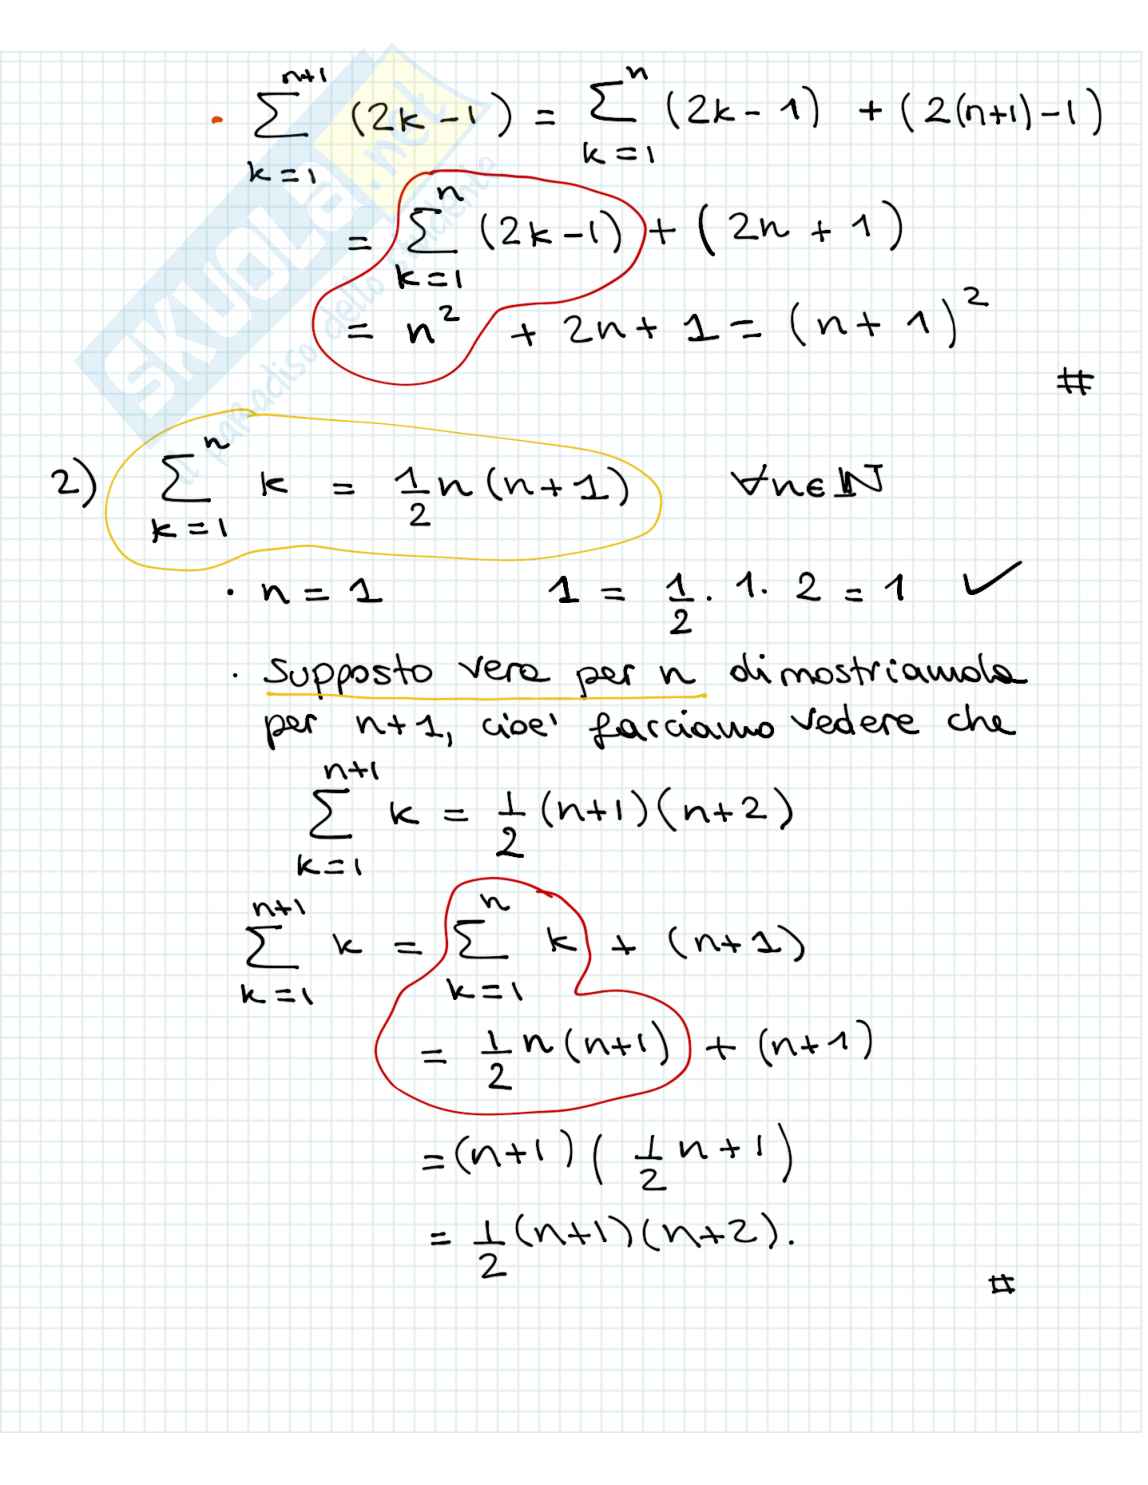 · \sum_{k=1}^{n+1} (2k-1) = \sum_{k=1}^{n} (2k-1) + (2(n+1)-1)
= \sum_{k=1}^{n} (2k-1) + (2n+1)
= n^2 + 2n+1 = (n+1)^2
#
2) \sum_{k=1}^{n} k = \frac{1}{2} n(n+1) ∀n∈ℕ
· n=1 1 = \frac{1}{2} · 1 · 2 = 1 ✓
· Supposto vera per n dimostriamola
per n+1, cioe' facciamo vedere che
\sum_{k=1}^{n+1} k = \frac{1}{2} (n+1)(n+2)
\sum_{k=1}^{n+1} k = \sum_{k=1}^{n} k + (n+1)
= \frac{1}{2} n(n+1) + (n+1)
= (n+1)( \frac{1}{2} n+1)
= \frac{1}{2} (n+1)(n+2).
#
SKUOLA.net
il paradiso dello studente